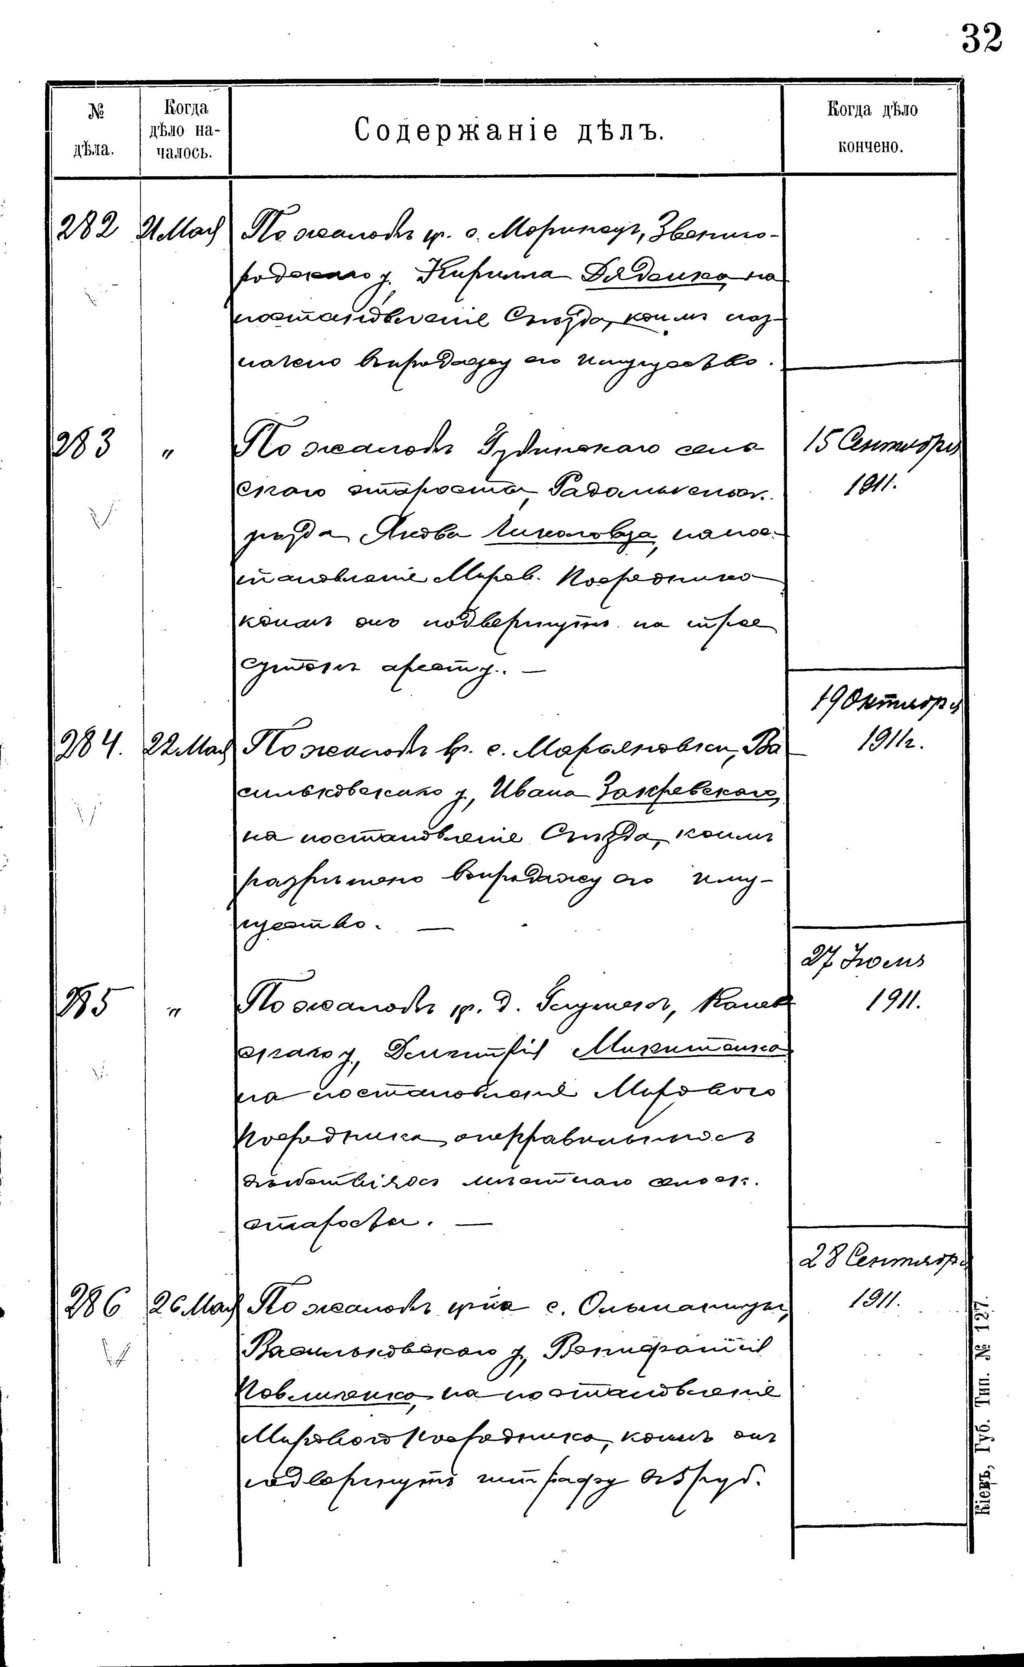 32
№ дѣла.
Когда дѣло началось.
Содержаніе дѣлъ.
Когда дѣло кончено.
282 21 Мая По жалобѣ кр. с. Моринецъ, Звениго-
родскаго у, Кирилла Дяденка на
постановленіе Съѣзда, коимъ наз-
начено въ продажу его имущество.
283 " По жалобѣ сель- 15 Сентября
скаго старосты, Радомысльск. 1911.
уѣзда Якова на пос-
тановленіе Миров. Посредника
коимъ онъ подвергнутъ на трое
сутокъ аресту. —
19 Октября
284. 22 Мая По жалобѣ кр. с. Марьяновки, Ва 1911 г.
сильковскаго у, Ивана Закревскаго,
на постановленіе Съѣзда, коимъ
разрѣшено въ продажу его иму-
щество. —
27 Іюля
285 " По жалобѣ кр. д. Канев 1911.
скаго у, Дмитрія Микитенка
на постановленіе Мирового
Посредника, о неправильныхъ
дѣйствіяхъ мѣстнаго сельск.
старосты. —
28 Сентября
286 26 Мая По жалобѣ кр-на с. Ольшаницы, 1911.
Васильковскаго у, Венифатія
Павличенко, на постановленіе
Мирового Посредника, коимъ онъ
подвергнутъ штрафу въ 5 руб.
Кіевъ, Губ. Тип. № 127.